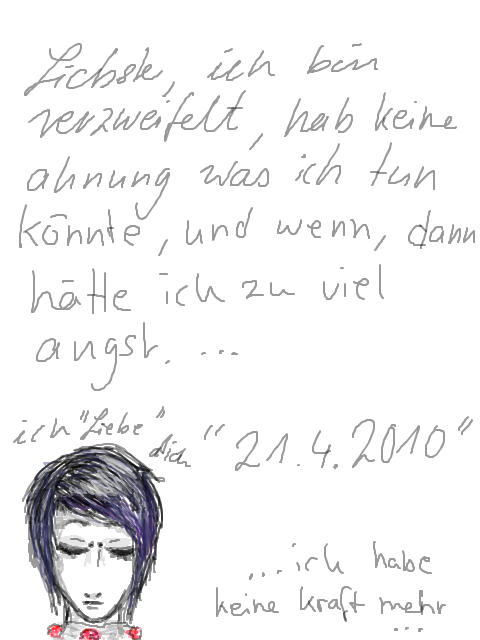 Liebste, ich bin
verzweifelt, hab keine
ahnung was ich tun
könnte, und wenn, dann
hätte ich zu viel
angst. ...
ich "Liebe" dich "21.4.2010"
...ich habe
keine kraft mehr
...